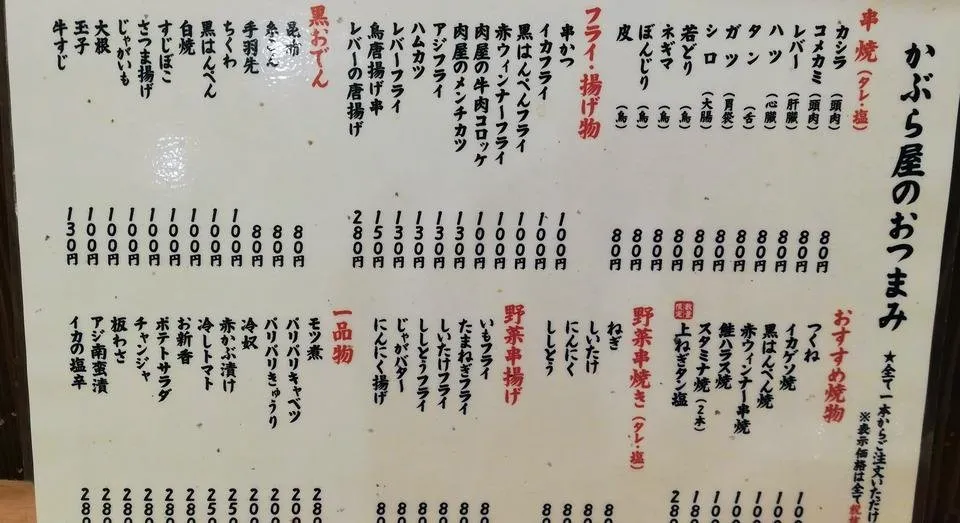 かぶら屋のおつまみ
★全て一本からご注文いただけ
※表示価格は全て税抜
串焼（タレ・塩）
カシラ（頭肉） 80円
コメカミ（頭肉） 80円
レバー（肝臓） 80円
ハツ（心臓） 80円
タン（舌） 80円
ガツ（胃袋） 80円
シロ（大腸） 80円
若どり（鳥） 80円
ネギマ（鳥） 80円
ぼんじり（鳥） 80円
皮（鳥） 80円
フライ・揚げ物
串かつ 100円
イカフライ 100円
黒はんぺんフライ 100円
赤ウィンナーフライ 100円
肉屋の牛肉コロッケ 100円
肉屋のメンチカツ 130円
アジフライ 130円
ハムカツ 130円
レバーフライ 130円
鳥唐揚げ串 150円
レバーの唐揚げ 280円
黒おでん
昆布 80円
糸こん 80円
手羽先 80円
ちくわ 100円
黒はんぺん 100円
白焼 100円
すじぼこ 100円
さつま揚げ 100円
じゃがいも 100円
大根 100円
玉子 100円
牛すじ 130円
おすすめ焼物
つくね
イカゲソ焼
黒はんぺん焼
赤ウィンナー串焼
鮭ハラス焼
スタミナ焼（2本）
数量限定
上ねぎタン塩
野菜串焼き（タレ・塩）
ねぎ
しいたけ
にんにく
ししとう
野菜串揚げ
いもフライ
たまねぎフライ
しいたけフライ
ししとうフライ
じゃがバター
にんにく揚げ
一品物
モツ煮
バリバリキャベツ
バリバリきゅうり
冷奴
赤かぶ漬け
冷しトマト
お新香
ポテトサラダ
チャンジャ
板わさ
アジ南蛮漬
イカの塩辛